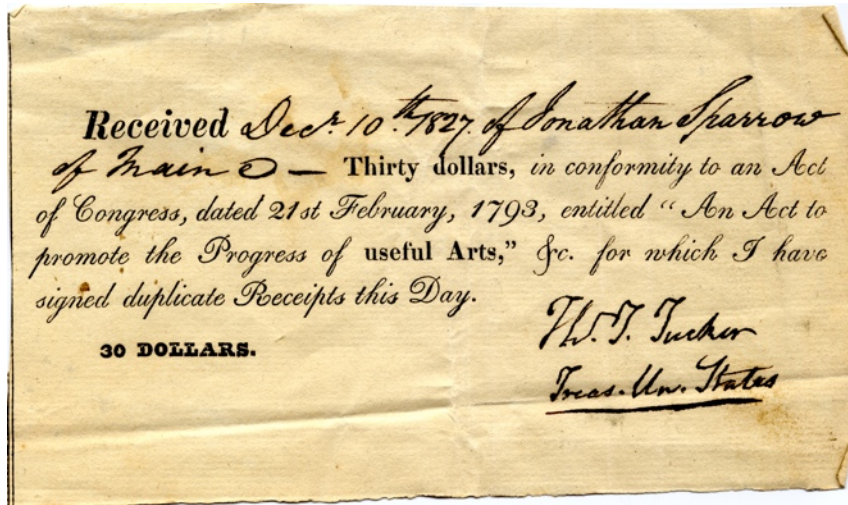 Received Decr. 10th. 1827. of Jonathan Sparrow
of Maine — Thirty dollars, in conformity to an Act
of Congress, dated 21st February, 1793, entitled “An Act to
promote the Progress of useful Arts,” &c. for which I have
signed duplicate Receipts this Day.
Th. T. Tucker
30 DOLLARS.
Treas. Un. States